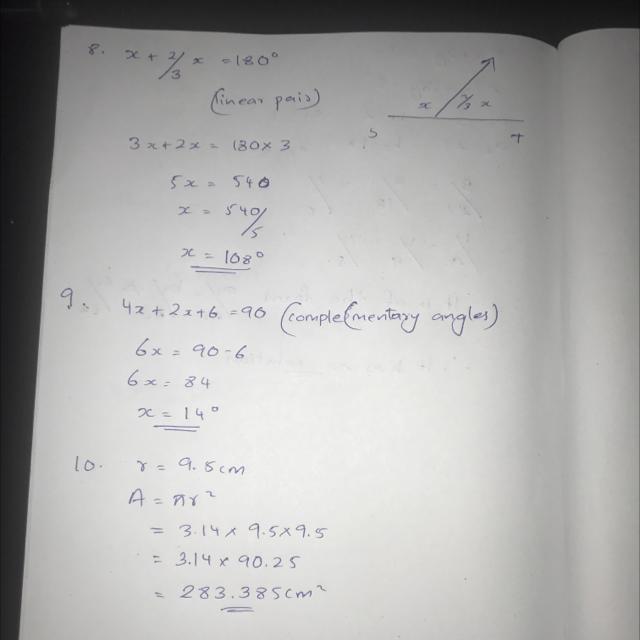 8. x + 2/3 x = 180°
(linear pair)
x 2/3 x
S T
3x + 2x = 180 x 3
5x = 540
x = 540/5
x = 108°
9. 4x + 2x + 6 = 90 (complementary angles)
6x = 90 - 6
6x = 84
x = 14°
10. r = 9.5cm
A = πr²
= 3.14 x 9.5 x 9.5
= 3.14 x 90.25
= 283.385cm²